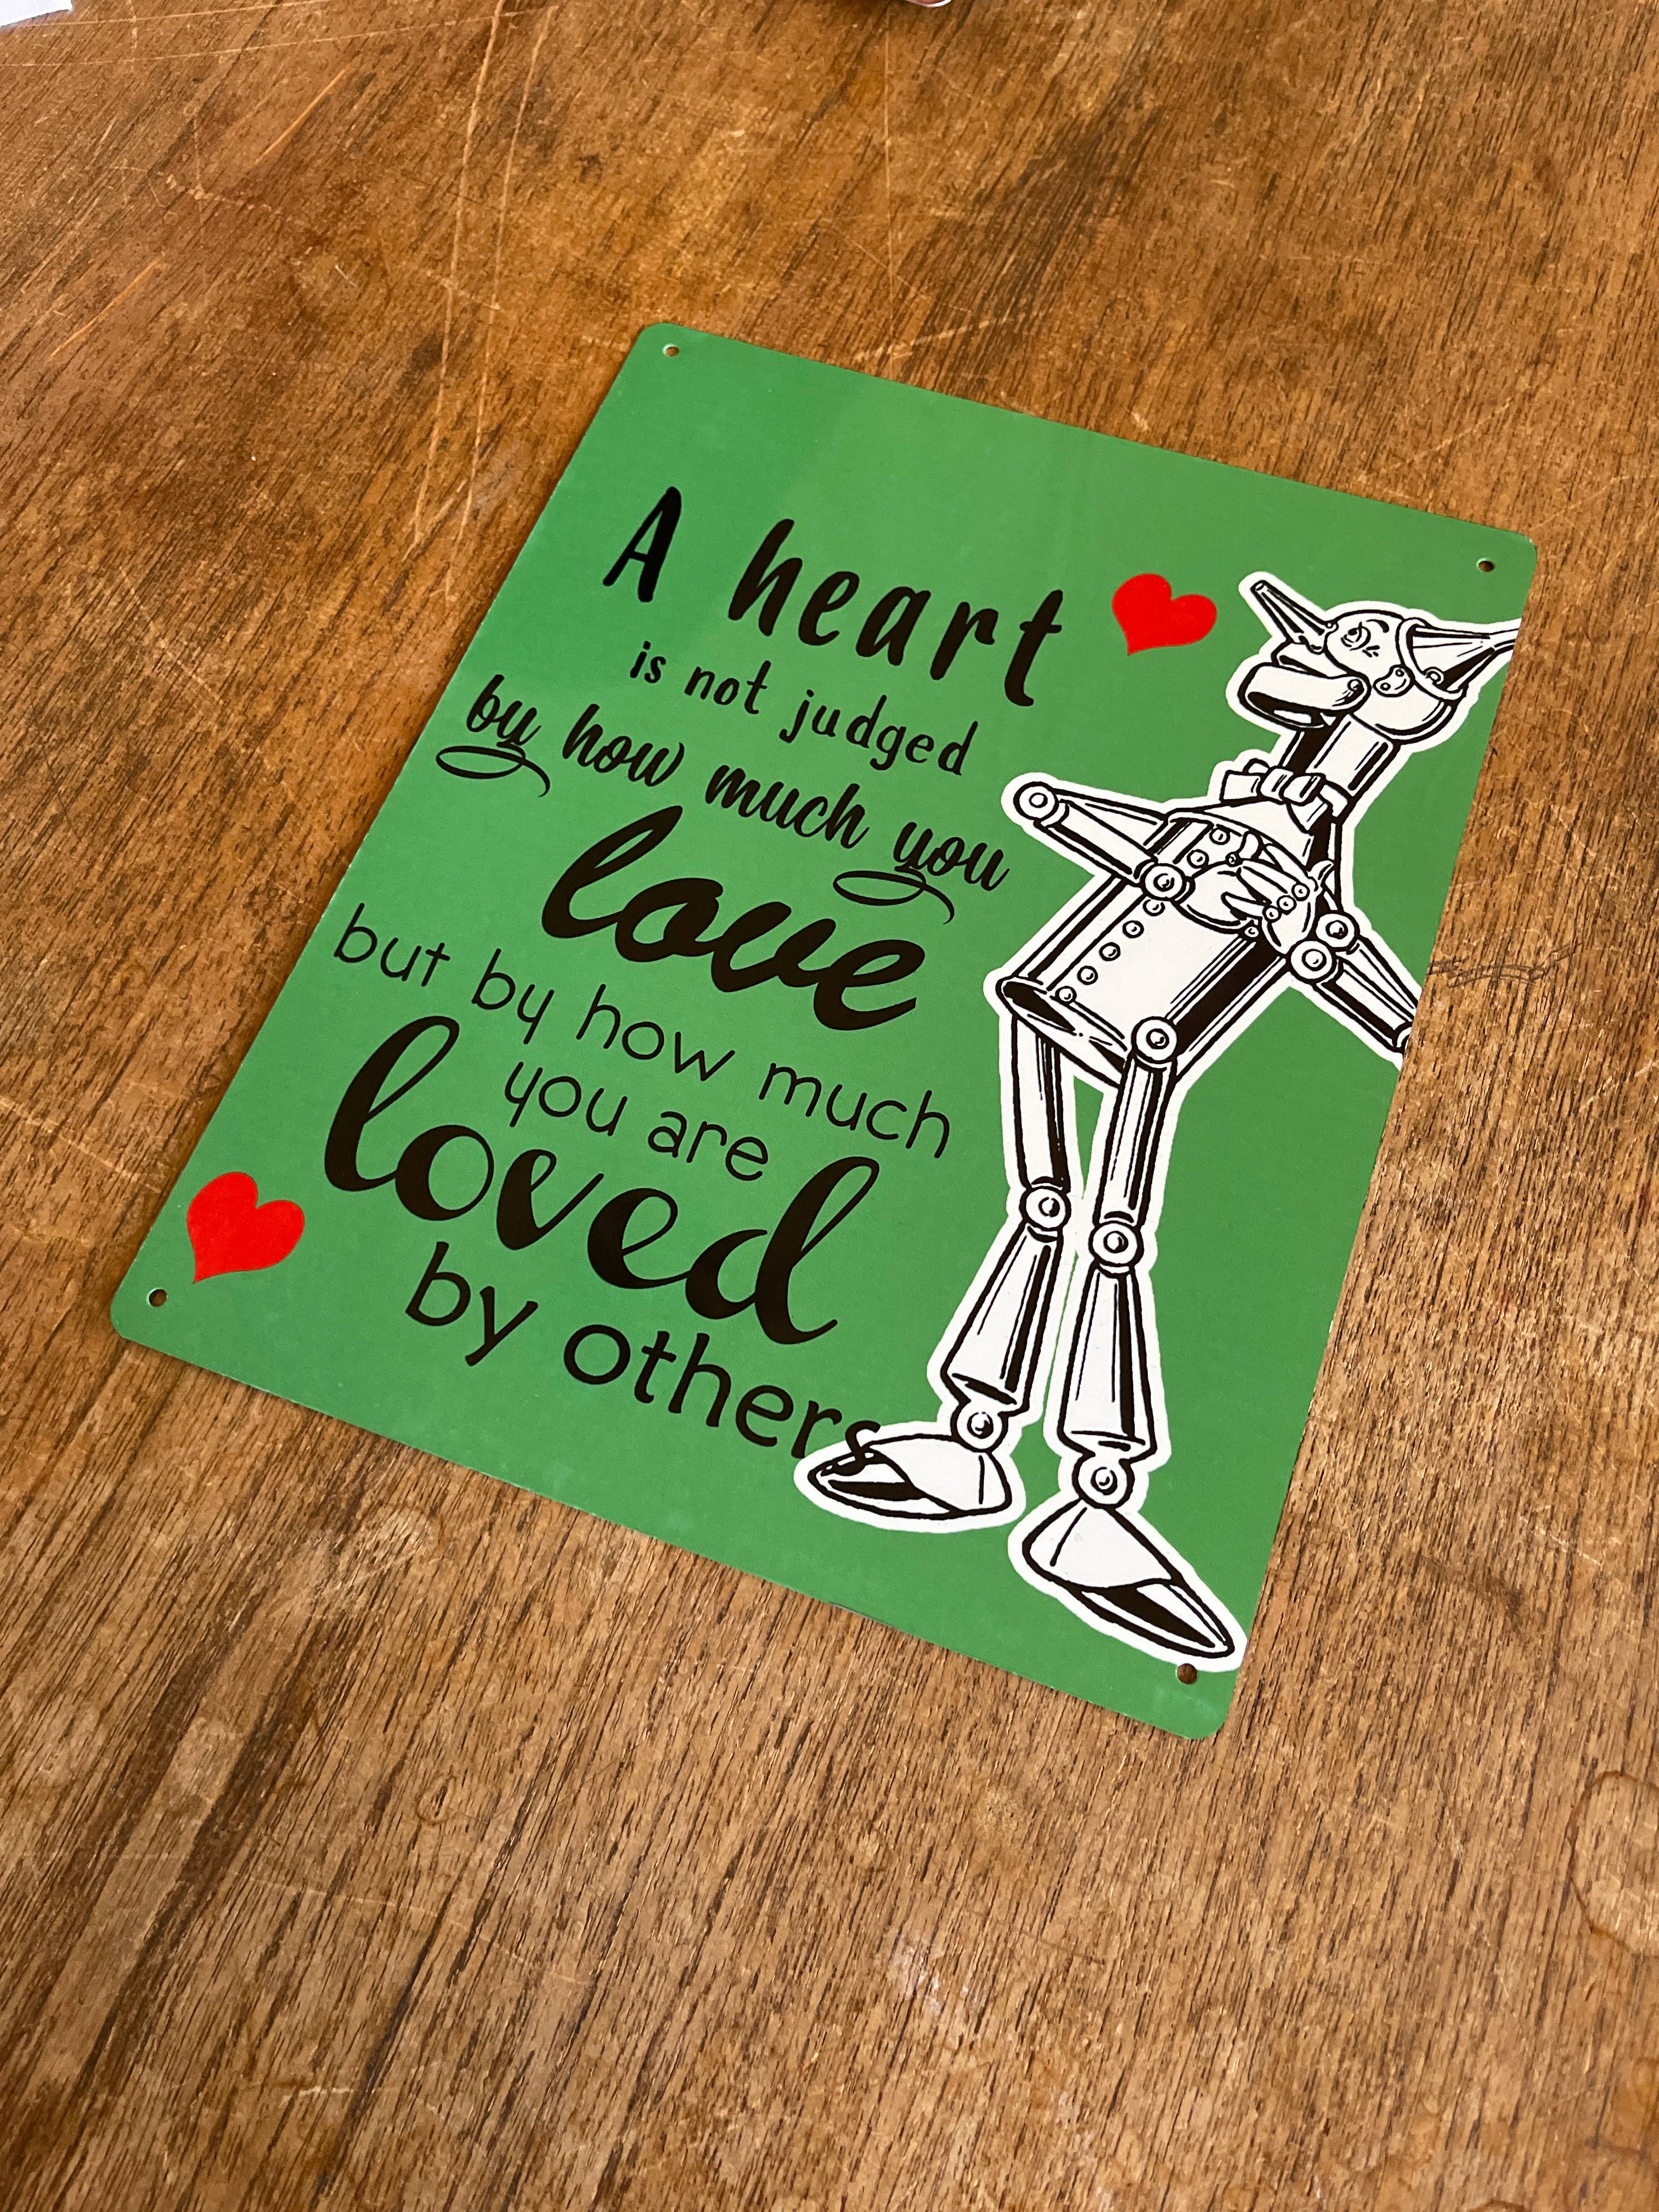 A heart
is not judged
by how much you
love
but by how much
you are
loved
by others